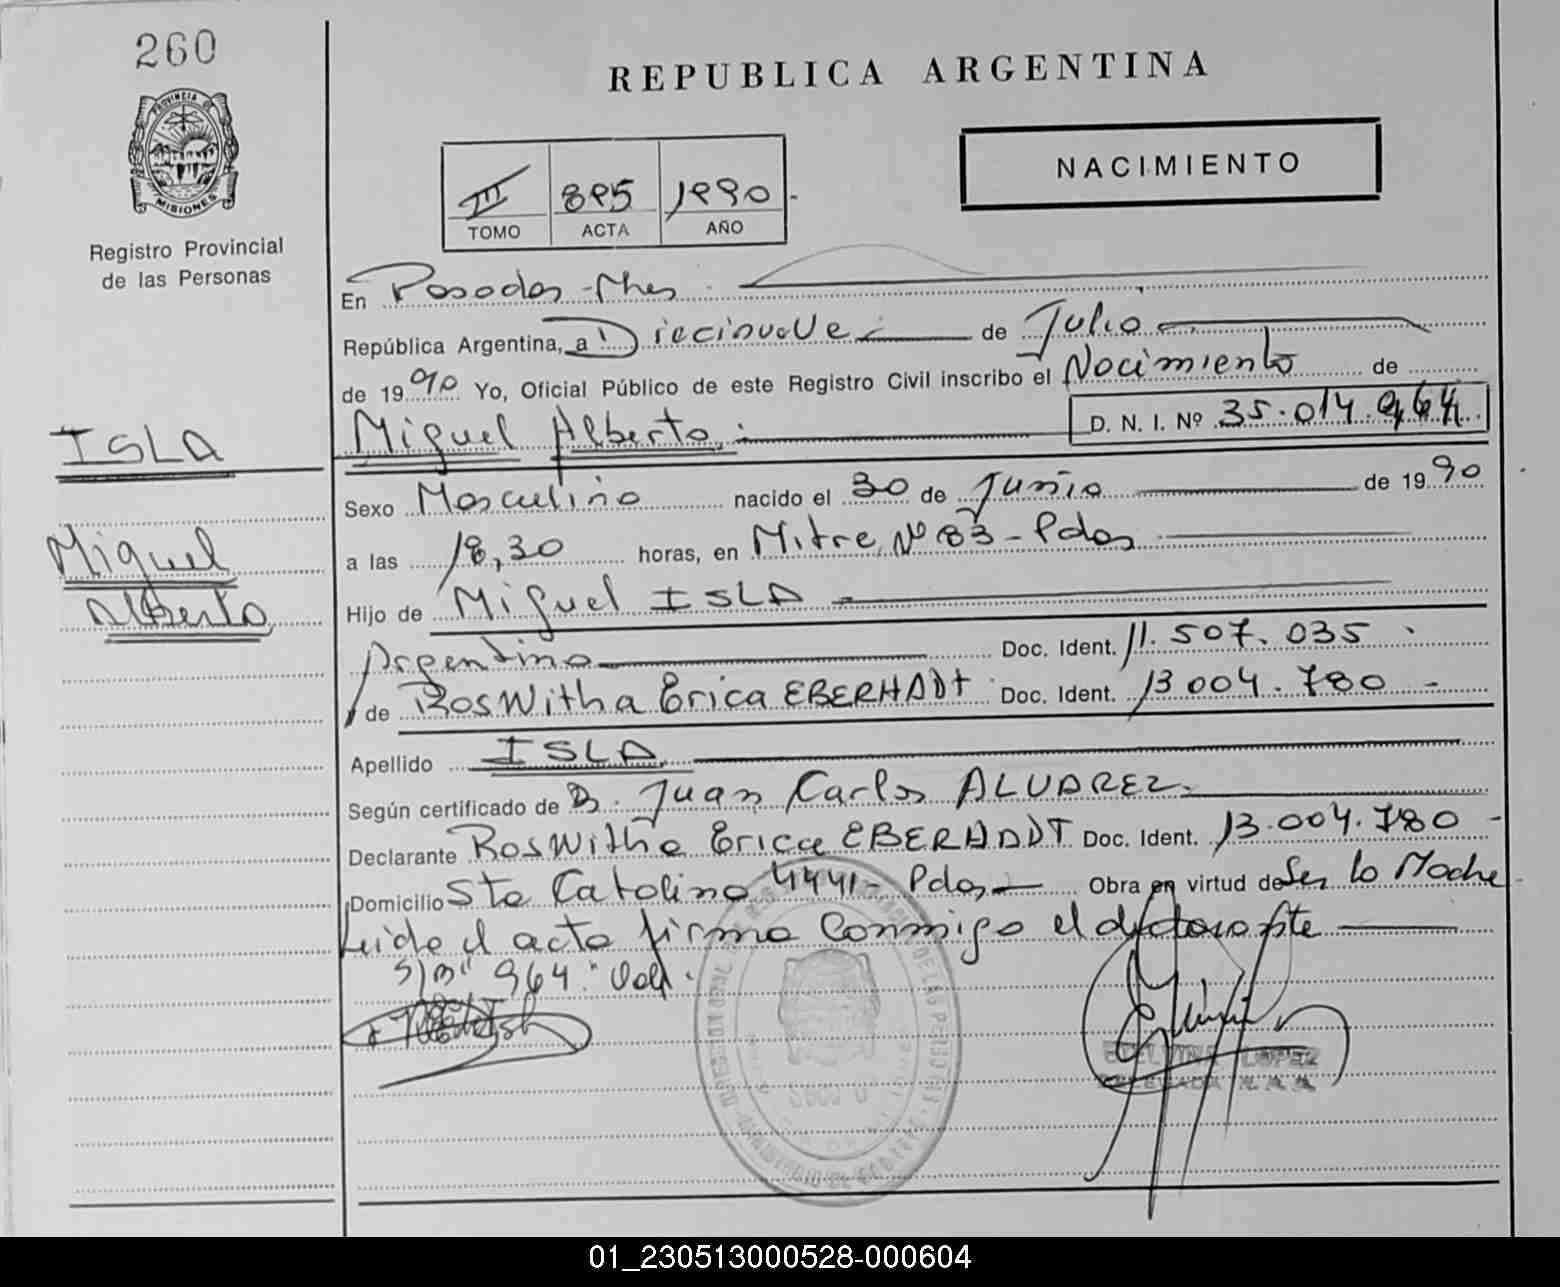 260
REPUBLICA ARGENTINA
PROVINCIA DE
MISIONES
Registro Provincial
de las Personas
NACIMIENTO
III 895 1990.-
TOMO ACTA AÑO
En Posadas - Mnes.
República Argentina, a Diecinueve de Julio
de 1990 Yo, Oficial Público de este Registro Civil inscribo el Nacimiento de
Miguel Alberto.- D. N. I. Nº 35.014.964
ISLA
Miguel
Alberto
Sexo Masculino nacido el 30 de Junio de 1990
a las 18,30 horas, en Mitre, Nº 83 - Pdas
Hijo de Miguel ISLA
Argentino Doc. Ident. 11.507.035
de Roswitha Erica EBERHADt Doc. Ident. 13.004.780 -
Apellido ISLA
Según certificado de Dr. Juan Carlos ALVAREZ.
Declarante Roswitha Erica EBERHADDT Doc. Ident. 13.004.780 -
Domicilio Sta Catalina 4441 - Pdas Obra en virtud de Ser la Madre
Leida el acta firma conmigo el
S/R "964" Vale.
LOPEZ
01_230513000528-000604